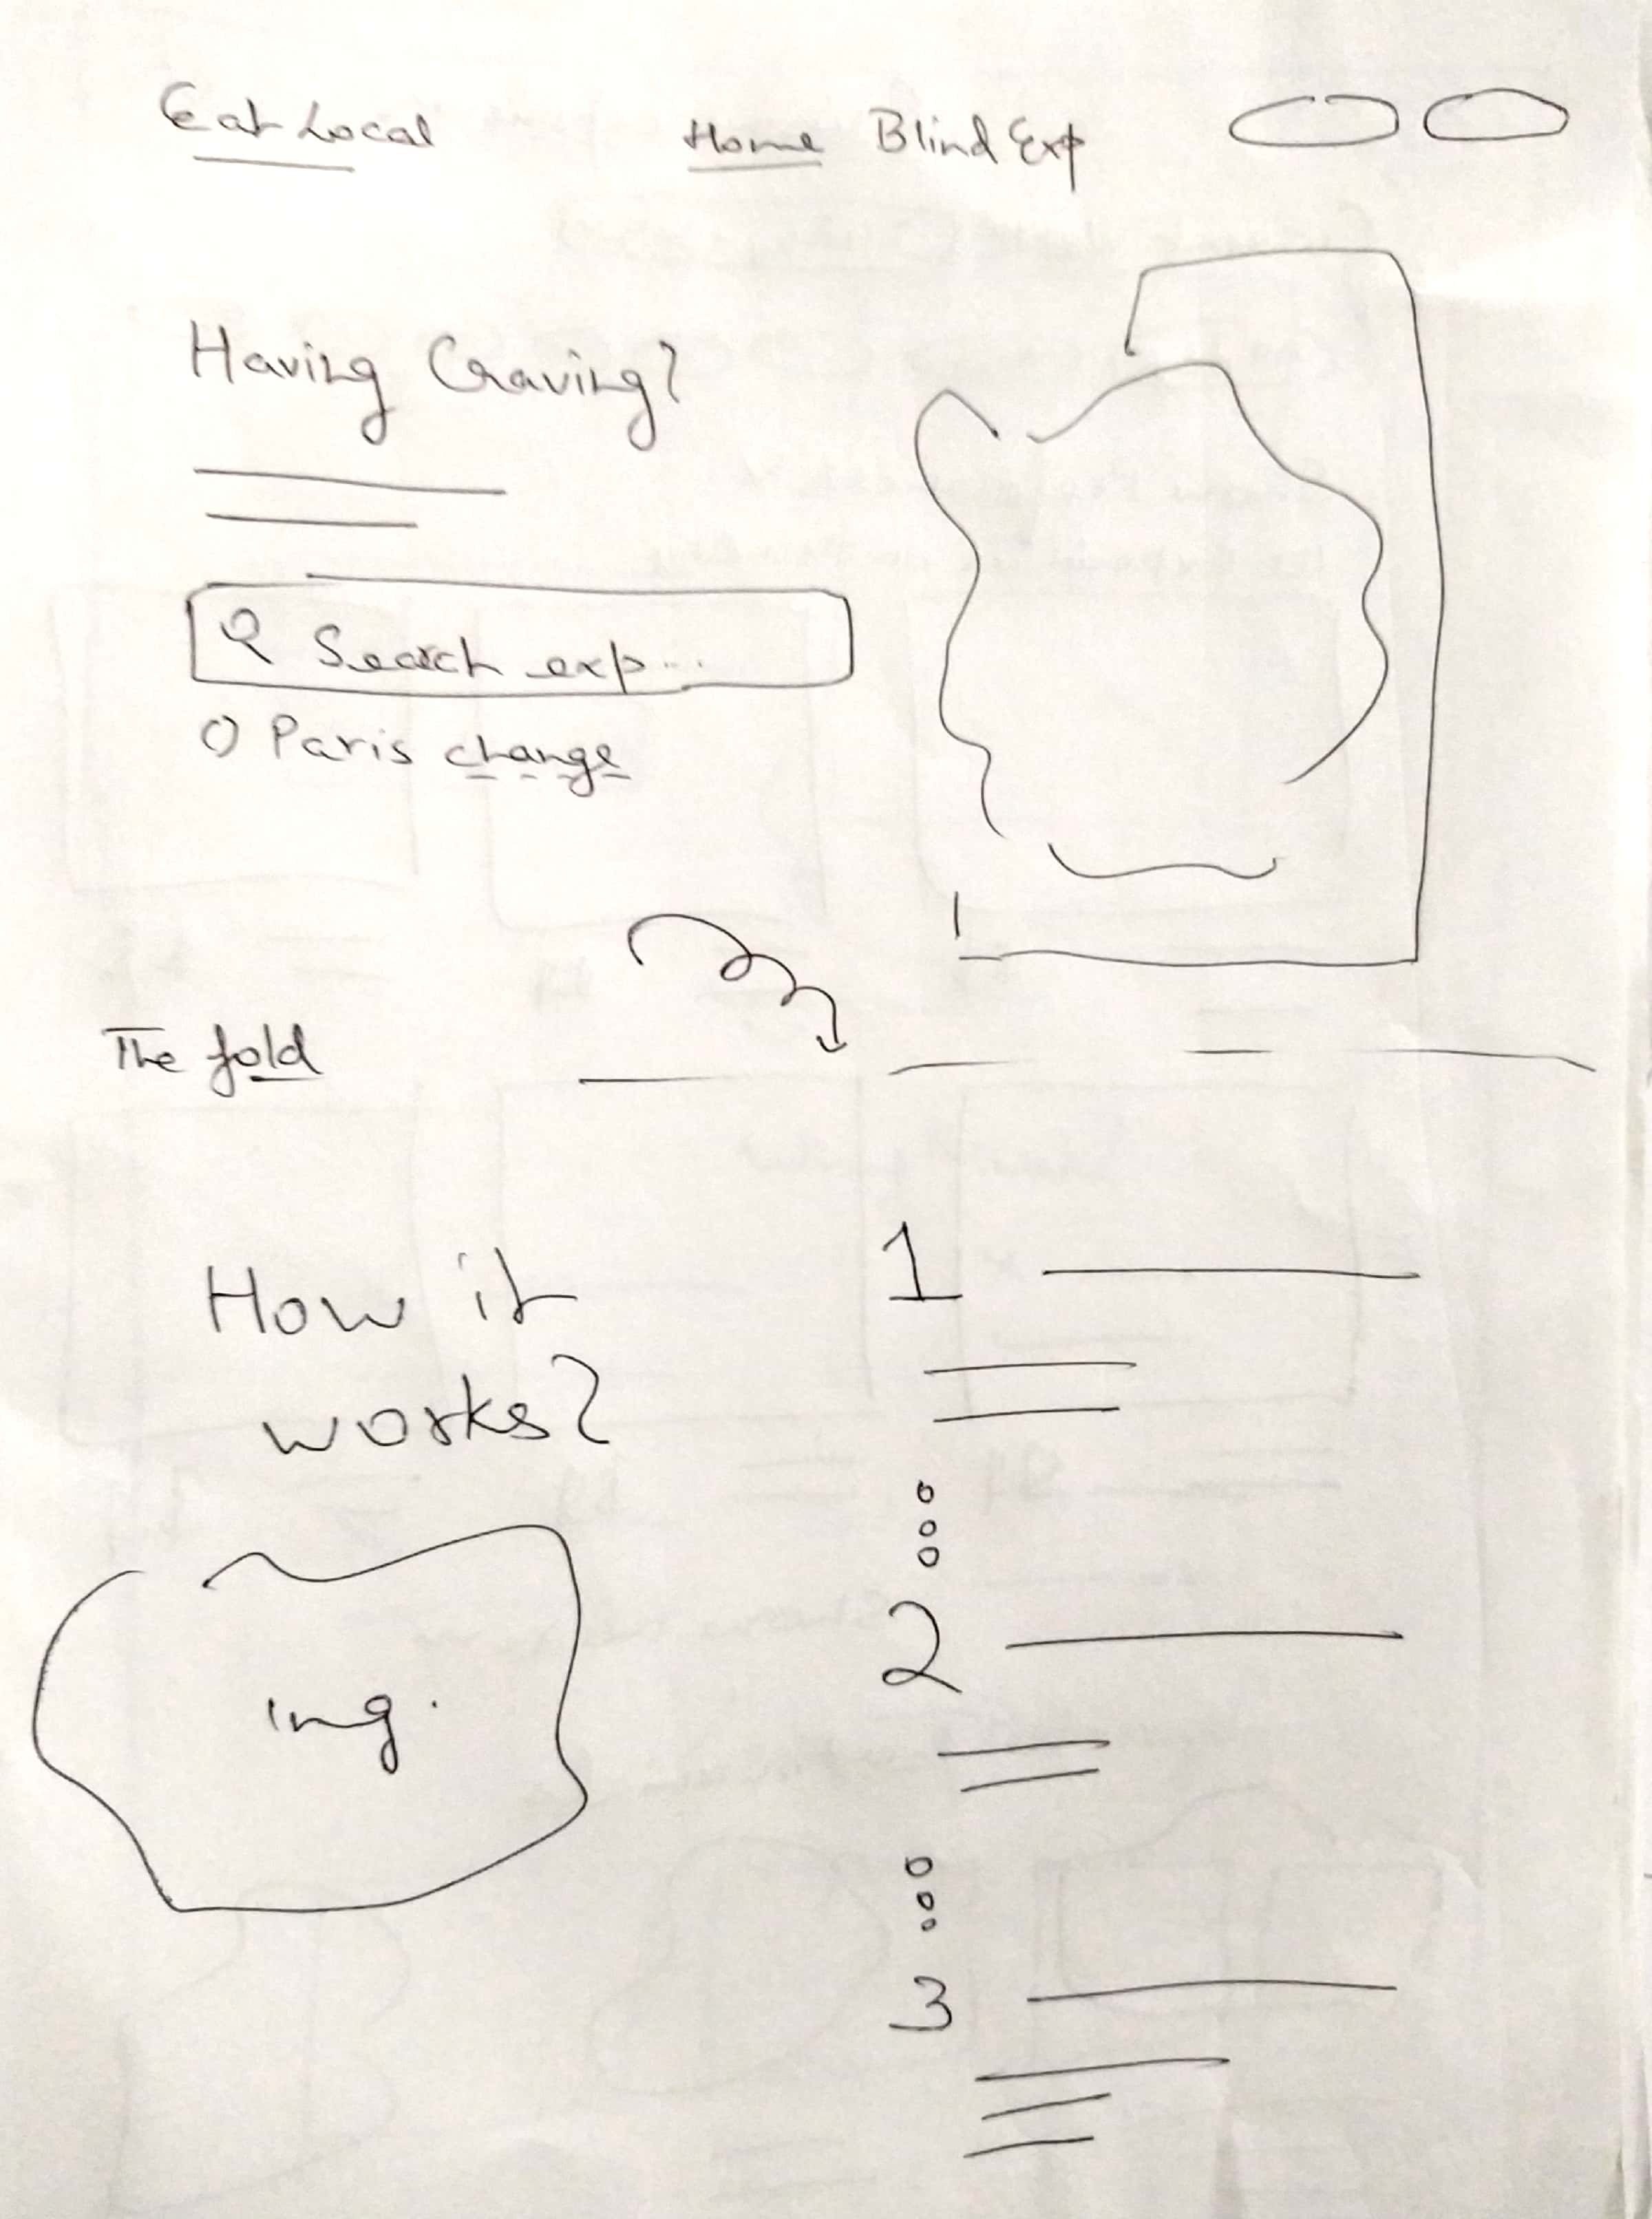 Eat Local
Home Blind Exp
Having Craving?
Search exp...
Paris change
The fold
How it
works?
img.
1
2
3